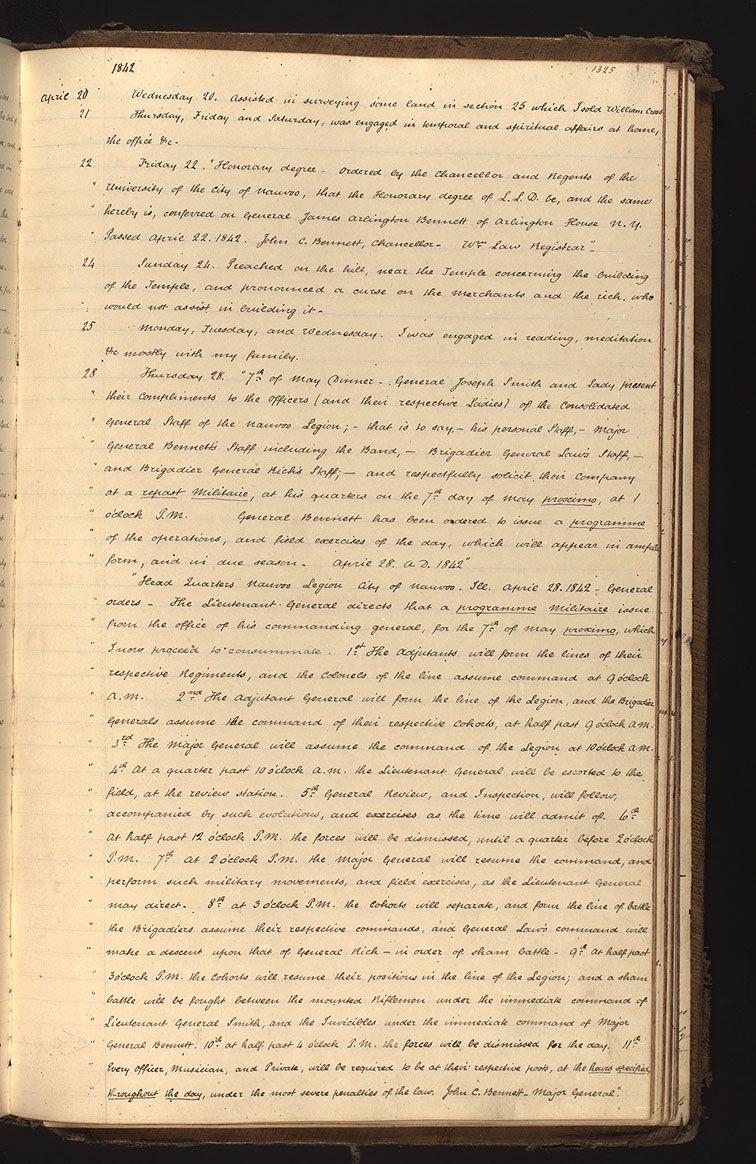 1842 1325
April 20 Wednesday 20. Assisted in surveying some land in section 25 which I sold William Cross
21 Thursday, Friday and Saturday, was engaged in temporal and spiritual affairs at home,
the office &c.
22 Friday 22. "Honorary degree - ordered by the Chancellor and Regents of the
" University of the City of Nauvoo, that the Honorary degree of L.L.D. be, and the same
" hereby is, conferred on General James Arlington Bennett of Arlington House N.Y.
" Passed April 22. 1842. John C. Bennett, Chancellor - Wm Law Registrar"-
24 Sunday 24. Preached on the hill, near the Temple concerning the building
of the Temple, and pronounced a curse on the Merchants and the rich, who
would not assist in building it -
25 Monday, Tuesday, and Wednesday. I was engaged in reading, meditation
&c mostly with my family.
28 Thursday 28. "7th of May Dinner - General Joseph Smith and Lady present
" their compliments to the officers (and their respective Ladies) of the Consolidated
" General Staff of the Nauvoo Legion; - that is to say, - his personal Staff, - Major
" General Bennett's Staff including the Band, - Brigadier General Law's Staff, -
" and Brigadier General Rich's Staff; - and respectfully solicit their company
" at a repast Militaire, at his quarters on the 7th day of May proximo, at 1
" o'clock P.M. General Bennett has been ordered to issue a programme
" of the operations, and field exercises of the day, which will appear in ample
" form, and in due season - April 28. A.D. 1842"
"Head Quarters Nauvoo Legion City of Nauvoo. Ill. April 28. 1842 - General
" orders - The Lieutenant General directs that a programme Militaire issue
" from the office of his commanding general, for the 7th of May proximo, which
" I now proceed to consummate. 1st The Adjutants will form the lines of their
" respective Regiments, and the Colonels of the line assume command at 9 o'clock
" A.M. 2nd The Adjutant General will form the line of the Legion, and the Brigadier
" Generals assume the command of their respective Cohorts, at half past 9 o'clock A.M.
" 3rd The Major General will assume the command of the Legion at 10 o'clock A.M.
" 4th At a quarter past 10 o'clock A.M. the Lieutenant General will be escorted to the
" field, at the review station. 5th General Review, and Inspection, will follow,
" accompanied by such evolutions, and exercises as the time will admit of. 6th
" At half past 12 o'clock P.M. the forces will be dismissed, until a quarter before 2 o'clock
" P.M. 7th At 2 o'clock P.M. the Major General will resume the command, and
" perform such military movements, and field exercises, as the Lieutenant General
" may direct. 8th at 3 o'clock P.M. the Cohorts will separate, and form the line of battle
" the Brigadiers assume their respective commands, and General Law's command will
" make a descent upon that of General Rich - in order of sham battle - 9th At half past
" 3 o'clock P.M. the Cohorts will resume their positions in the line of the Legion; and a sham
" battle will be fought between the mounted Riflemen under the immediate command of
" Lieutenant General Smith, and the Invicibles under the immediate command of Major
" General Bennett. 10th at half past 4 o'clock P.M. the forces will be dismissed for the day. 11th
" Every officer, Musician, and Private, will be required to be at their respective posts, at the hours specified,
" throughout the day, under the most severe penalties of the law. John C. Bennett - Major General".